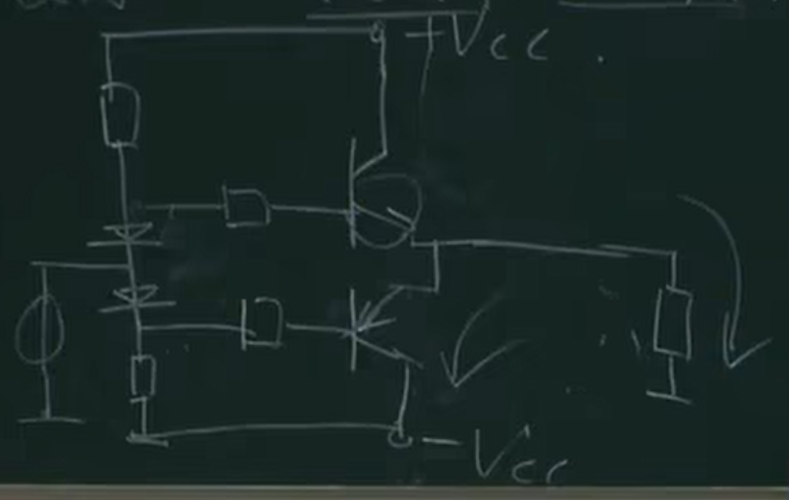 +Vcc
-Vcc